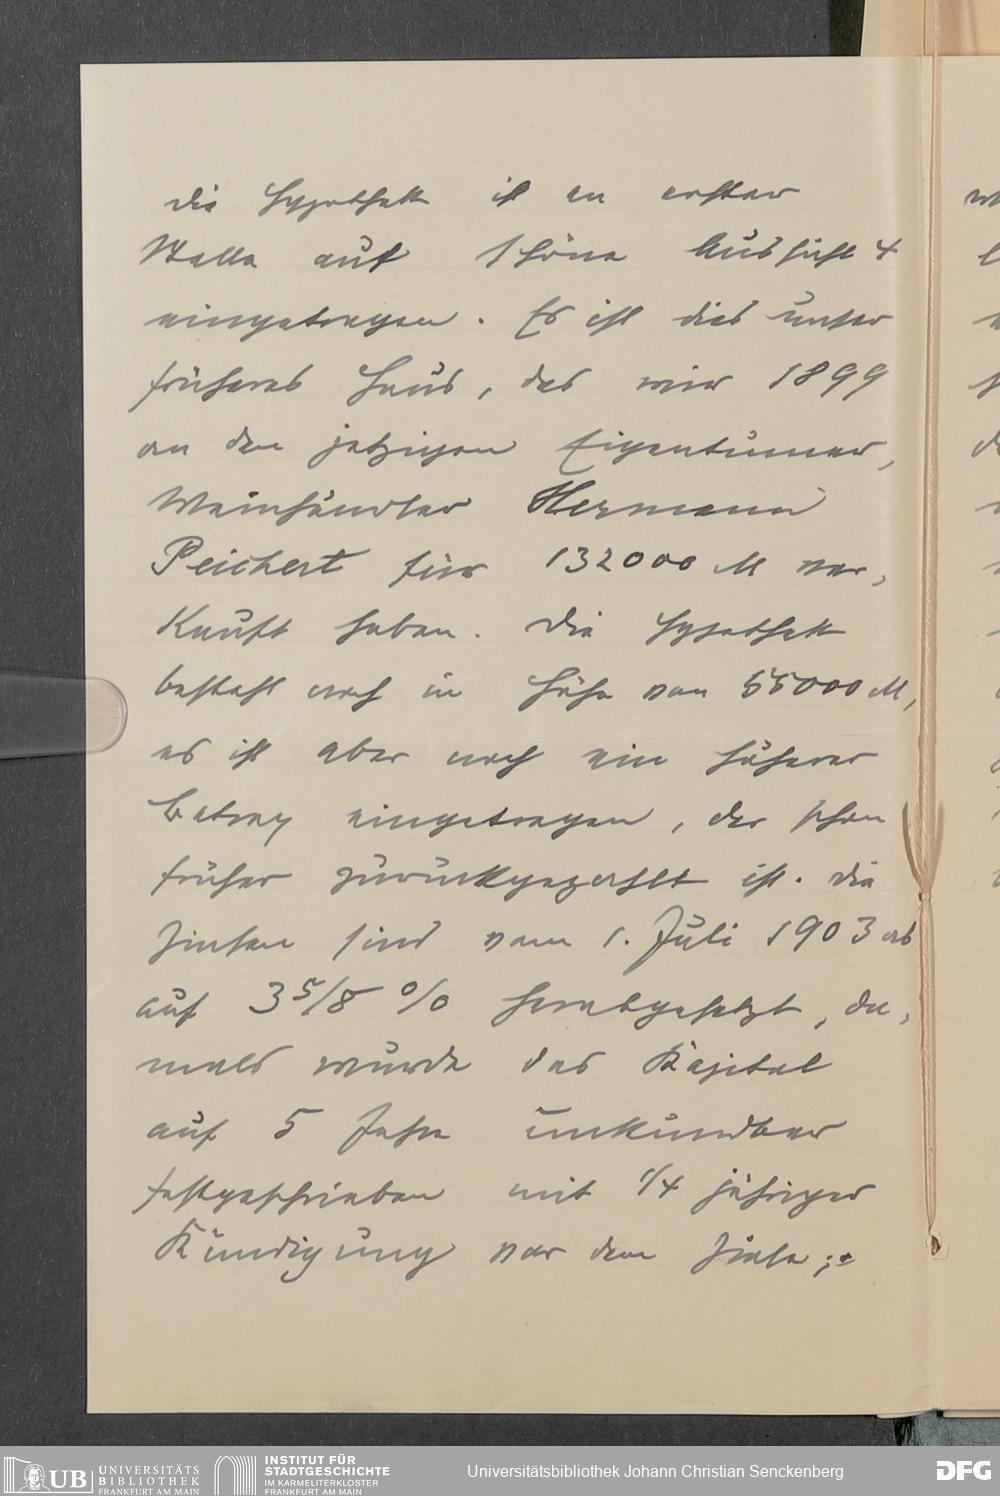 Die Hypothek ist an erster
Stelle auf Schöne Aussicht 4
eingetragen. Es ist dies unser
früheres Haus, das wir 1899
an den jetzigen Eigentümer,
Weinhändler Hermann
Peichert für 132000 M ver-
kauft haben. Die Hypothek
besteht noch in Höhe von 55000 M,
es ist aber noch ein höherer
Betrag eingetragen, der schon
früher zurückgezahlt ist. Die
Zinsen sind vom 1. Juli 1903 ab
auf 3 5/8 % herabgesetzt, da-
mals wurde das Kapital
auf 5 Jahre unkündbar
festgeschrieben mit 1/4 jähriger
Kündigung vor dem Ziele;
UB UNIVERSITÄTS BIBLIOTHEK FRANKFURT AM MAIN
INSTITUT FÜR STADTGESCHICHTE IM KARMELITERKLOSTER FRANKFURT AM MAIN
Universitätsbibliothek Johann Christian Senckenberg
DFG